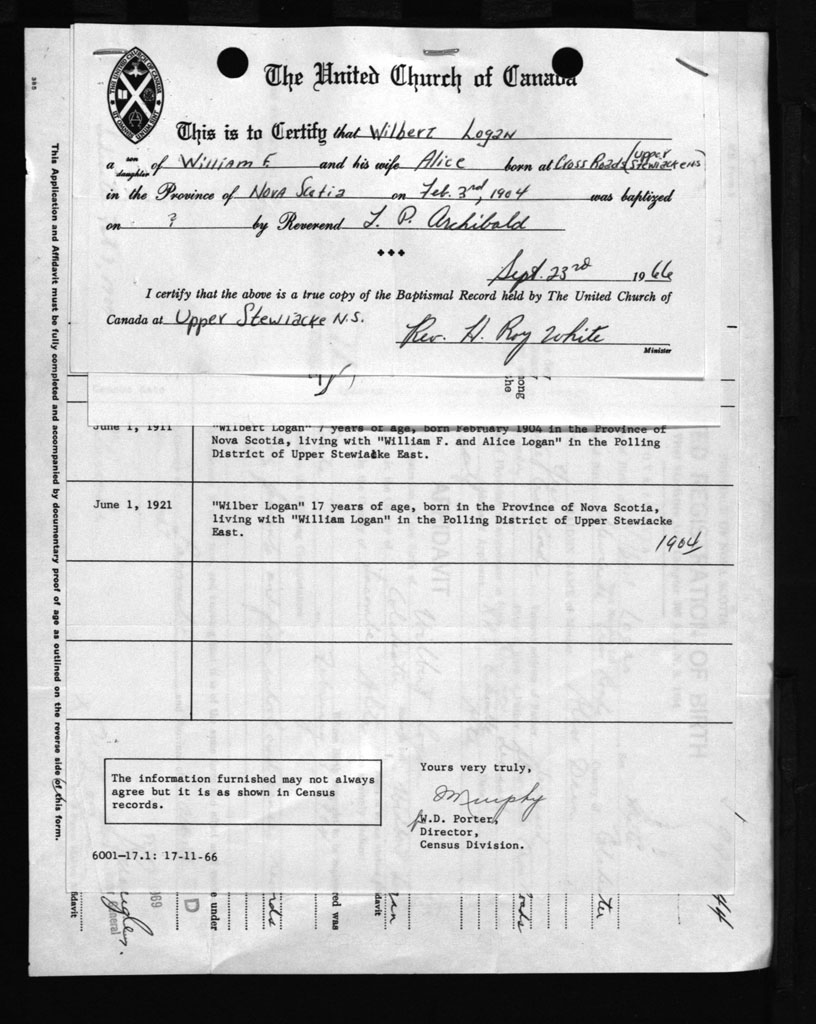 The United Church of Canada
This is to Certify that Wilbert Logan
a son daughter of William F. and his wife Alice born at Cross Roads (Upper Stewiacke NS)
in the Province of Nova Scotia on Feb. 3rd, 1904 was baptized
on ? by Reverend L. P. Archibald
Sept. 23rd 1966
I certify that the above is a true copy of the Baptismal Record held by The United Church of
Canada at Upper Stewiacke N.S.
Rev. H. Roy White
Minister
ong
the
June 1, 1911 "Wilbert Logan" 7 years of age, born February 1904 in the Province of
Nova Scotia, living with "William F. and Alice Logan" in the Polling
District of Upper Stewiacke East.
June 1, 1921 "Wilber Logan" 17 years of age, born in the Province of Nova Scotia,
living with "William Logan" in the Polling District of Upper Stewiacke
East.
1904
The information furnished may not always
agree but it is as shown in Census
records.
Yours very truly,
Murphy
for W.D. Porter,
Director,
Census Division.
6001-17.1: 17-11-66
This Application and Affidavit must be fully completed and accompanied by documentary proof of age as outlined on the reverse side of this form.
fidavit
General
969
D
e under
rds
red was
davit
an
roads
ter
44